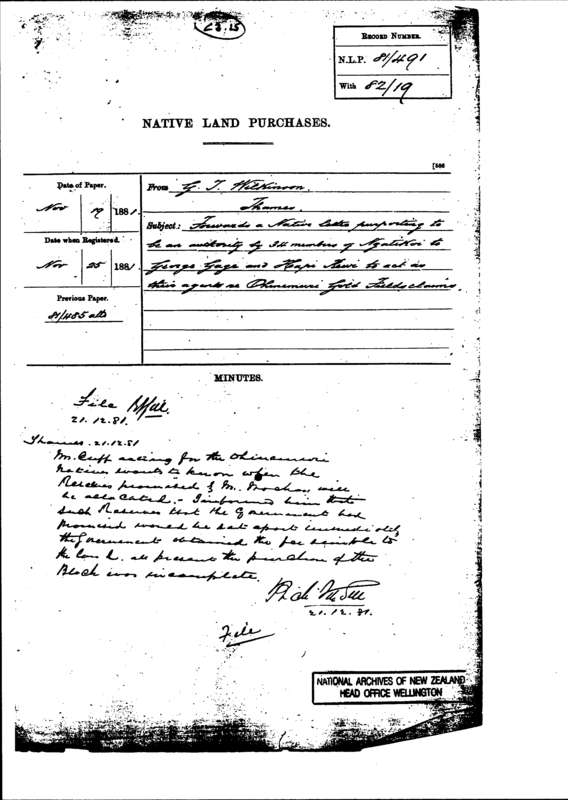 RECORD NUMBER.
N.L.P. 81/491
With 82/19
NATIVE LAND PURCHASES.
Date of Paper.
Nov 19 1881
Date when Registered.
Nov 25 1881
Previous Paper.
81/485 atts
From G. T. Wilkinson.
Thames.
Subject: Forwards a Native letter purporting to
be an authority by 34 members of Ngatikoi to
George Gage and Hapi Rewi to act as
their agents re Ohinemuri Gold Fields claims.
MINUTES.
File
21.12.81.
Thames. 21.12.81
Mr. Cuff acting for the Ohinemuri
Natives wants to know when the
Reserves promised by Mr. will
be allocated. - Informed him that
such Reserves that the Government had
promised would be set apart immediately
the Government obtained the fee simple to
the land. at present the purchase of the
Block was incomplete.
21.12.81.
File
NATIONAL ARCHIVES OF NEW ZEALAND
HEAD OFFICE WELLINGTON